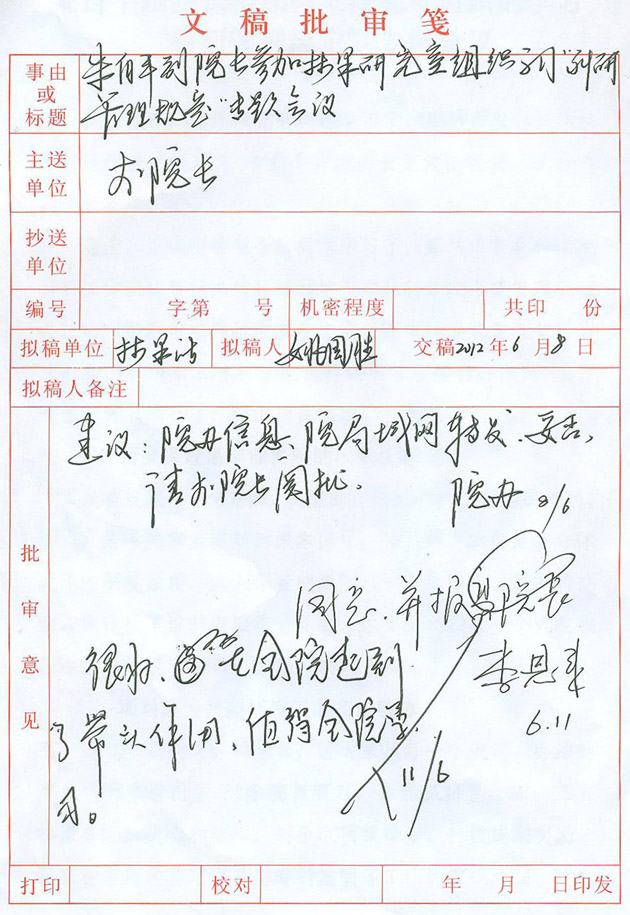 文稿批审笺
事由或标题 朱自平副院长参加林果研究室组织学习“科研
管理规范”专题会议
主送单位 李院长
抄送单位
编号 字第 号 机密程度 共印 份
拟稿单位 林果所 拟稿人 姚国胜 交稿2012年6月8日
拟稿人备注
批审意见
建议:院办信息、院局域网转发。妥否,
请李院长阅批。 院办 8/6
同意,并报 院长
很好,在全院起到 李恩来
了带头作用,值得全院学 6.11
习。 11/6
打印 校对 年 月 日印发